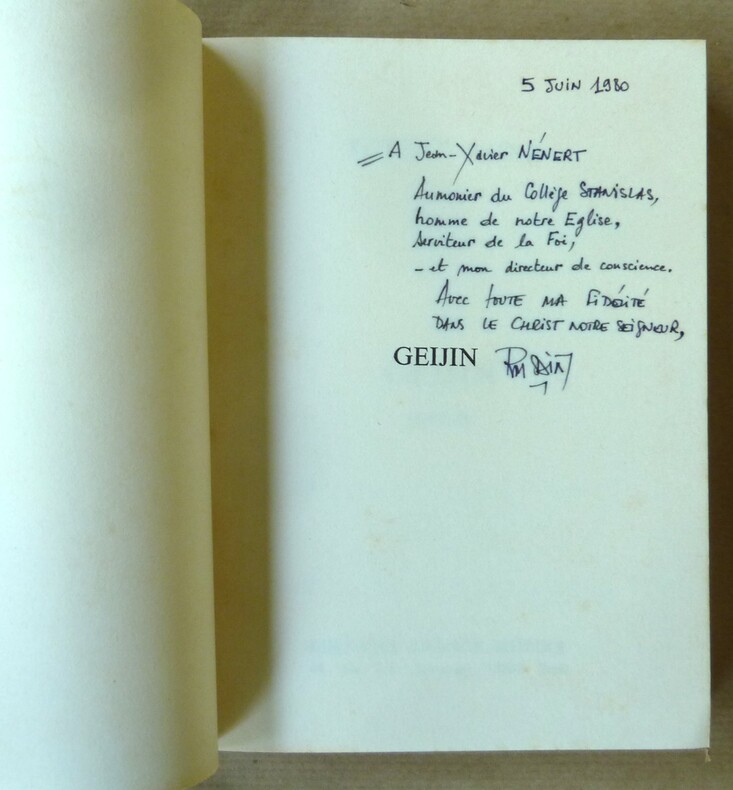 5 JUIN 1980
A Jean-Xavier NÉNERT
Aumônier du Collège STANISLAS,
homme de notre Eglise,
Serviteur de la Foi,
- et mon directeur de conscience.
Avec TOUTE MA FIDÉLITÉ
DANS LE CHRIST NOTRE SEIGNEUR,
GEIJIN